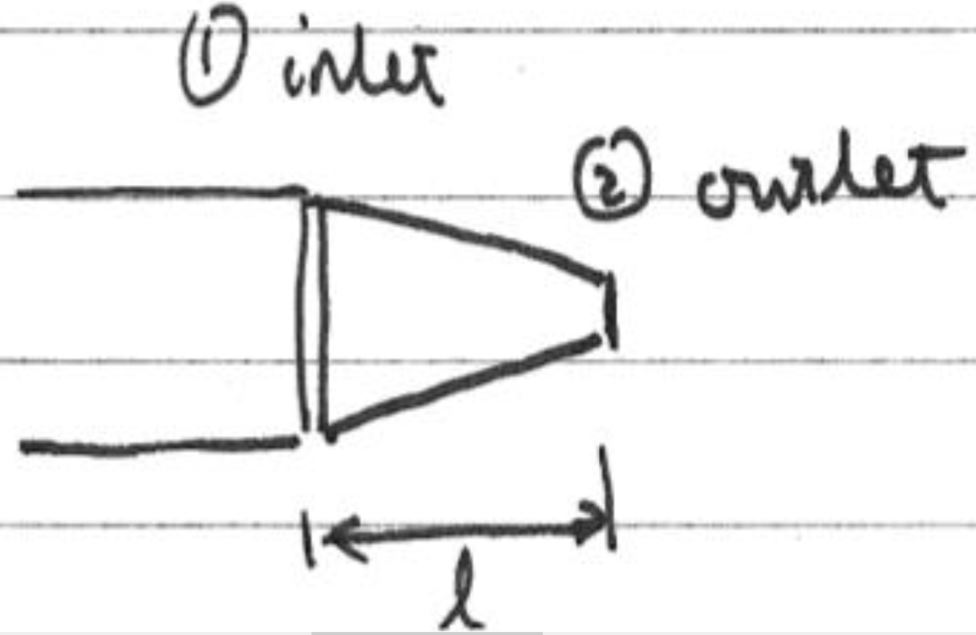 ① inlet
② outlet
l